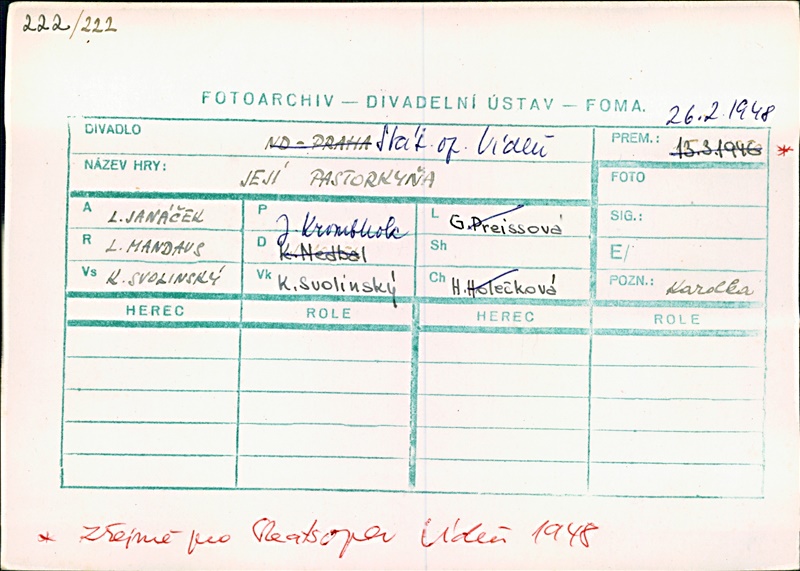 222/222
FOTOARCHIV — DIVADELNÍ ÚSTAV — FOMA.
26.2.1948
DIVADLO ND - PRAHA Stát. op. Vídeň PREM.: 15.3.1946 *
NÁZEV HRY: JEJÍ PASTORKYŇA FOTO
A L. JANÁČEK P J. Krombholc L G. Preissová SIG.:
R L. MANDAUS D K. Nedbal Sh E/
Vs K. SVOLINSKÝ Vk K. Svolinský Ch H. Holečková POZN.:
HEREC ROLE HEREC ROLE
* zřejmě pro Staatsoper Vídeň 1948